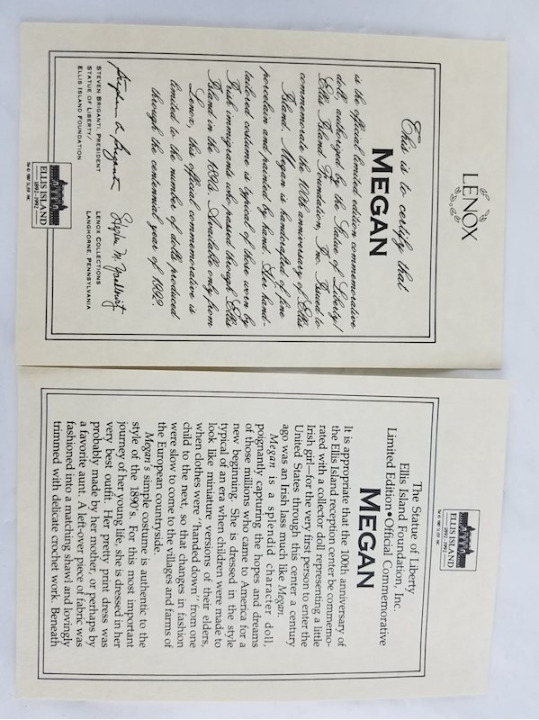 LENOX
This is to certify that
MEGAN
is the official limited edition commemorative
doll authorized by the Statue of Liberty/
Ellis Island Foundation, Inc. Issued to
commemorate the 100th anniversary of Ellis
Island. Megan is handcrafted of fine
porcelain and painted by hand. Her hand-
tailored costume is typical of those worn by
Irish immigrants who passed through Ellis
Island in the 1890s. Available only from
Lenox, this official commemorative is
limited to the number of dolls produced
through the centennial year of 1992.
STEVEN BRIGANTI, PRESIDENT
STATUE OF LIBERTY/
ELLIS ISLAND FOUNDATION
LENOX COLLECTIONS
LANGHORNE, PENNSYLVANIA
ELLIS ISLAND
1892-1992
ELLIS ISLAND
1892-1992
The Statue of Liberty
Ellis Island Foundation, Inc.
Limited Edition • Official Commemorative
MEGAN
It is appropriate that the 100th anniversary of
the Ellis Island reception center be commemo-
rated with a collector doll representing a little
Irish girl—for the very first person to enter the
United States through this center a century
ago was an Irish lass much like Megan.
Megan is a splendid character doll,
poignantly capturing the hopes and dreams
of those millions who came to America for a
new beginning. She is dressed in the style
typical of an era when children were made to
look like miniature versions of their elders,
when clothes were "handed down" from one
child to the next, so that changes in fashion
were slow to come to the villages and farms of
the European countryside.
Megan's simple costume is authentic to the
style of the 1890's. For this most important
journey of her young life, she is dressed in her
very best outfit. Her pretty print dress was
probably made by her mother, or perhaps by
a favorite aunt. A left-over piece of fabric was
fashioned into a matching shawl and lovingly
trimmed with delicate crochet work. Beneath